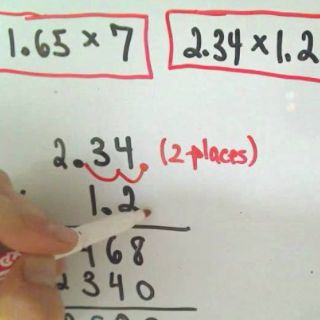 1.65 × 7
2.34 × 1.2
2.34 (2-places)
1.2
468
2340